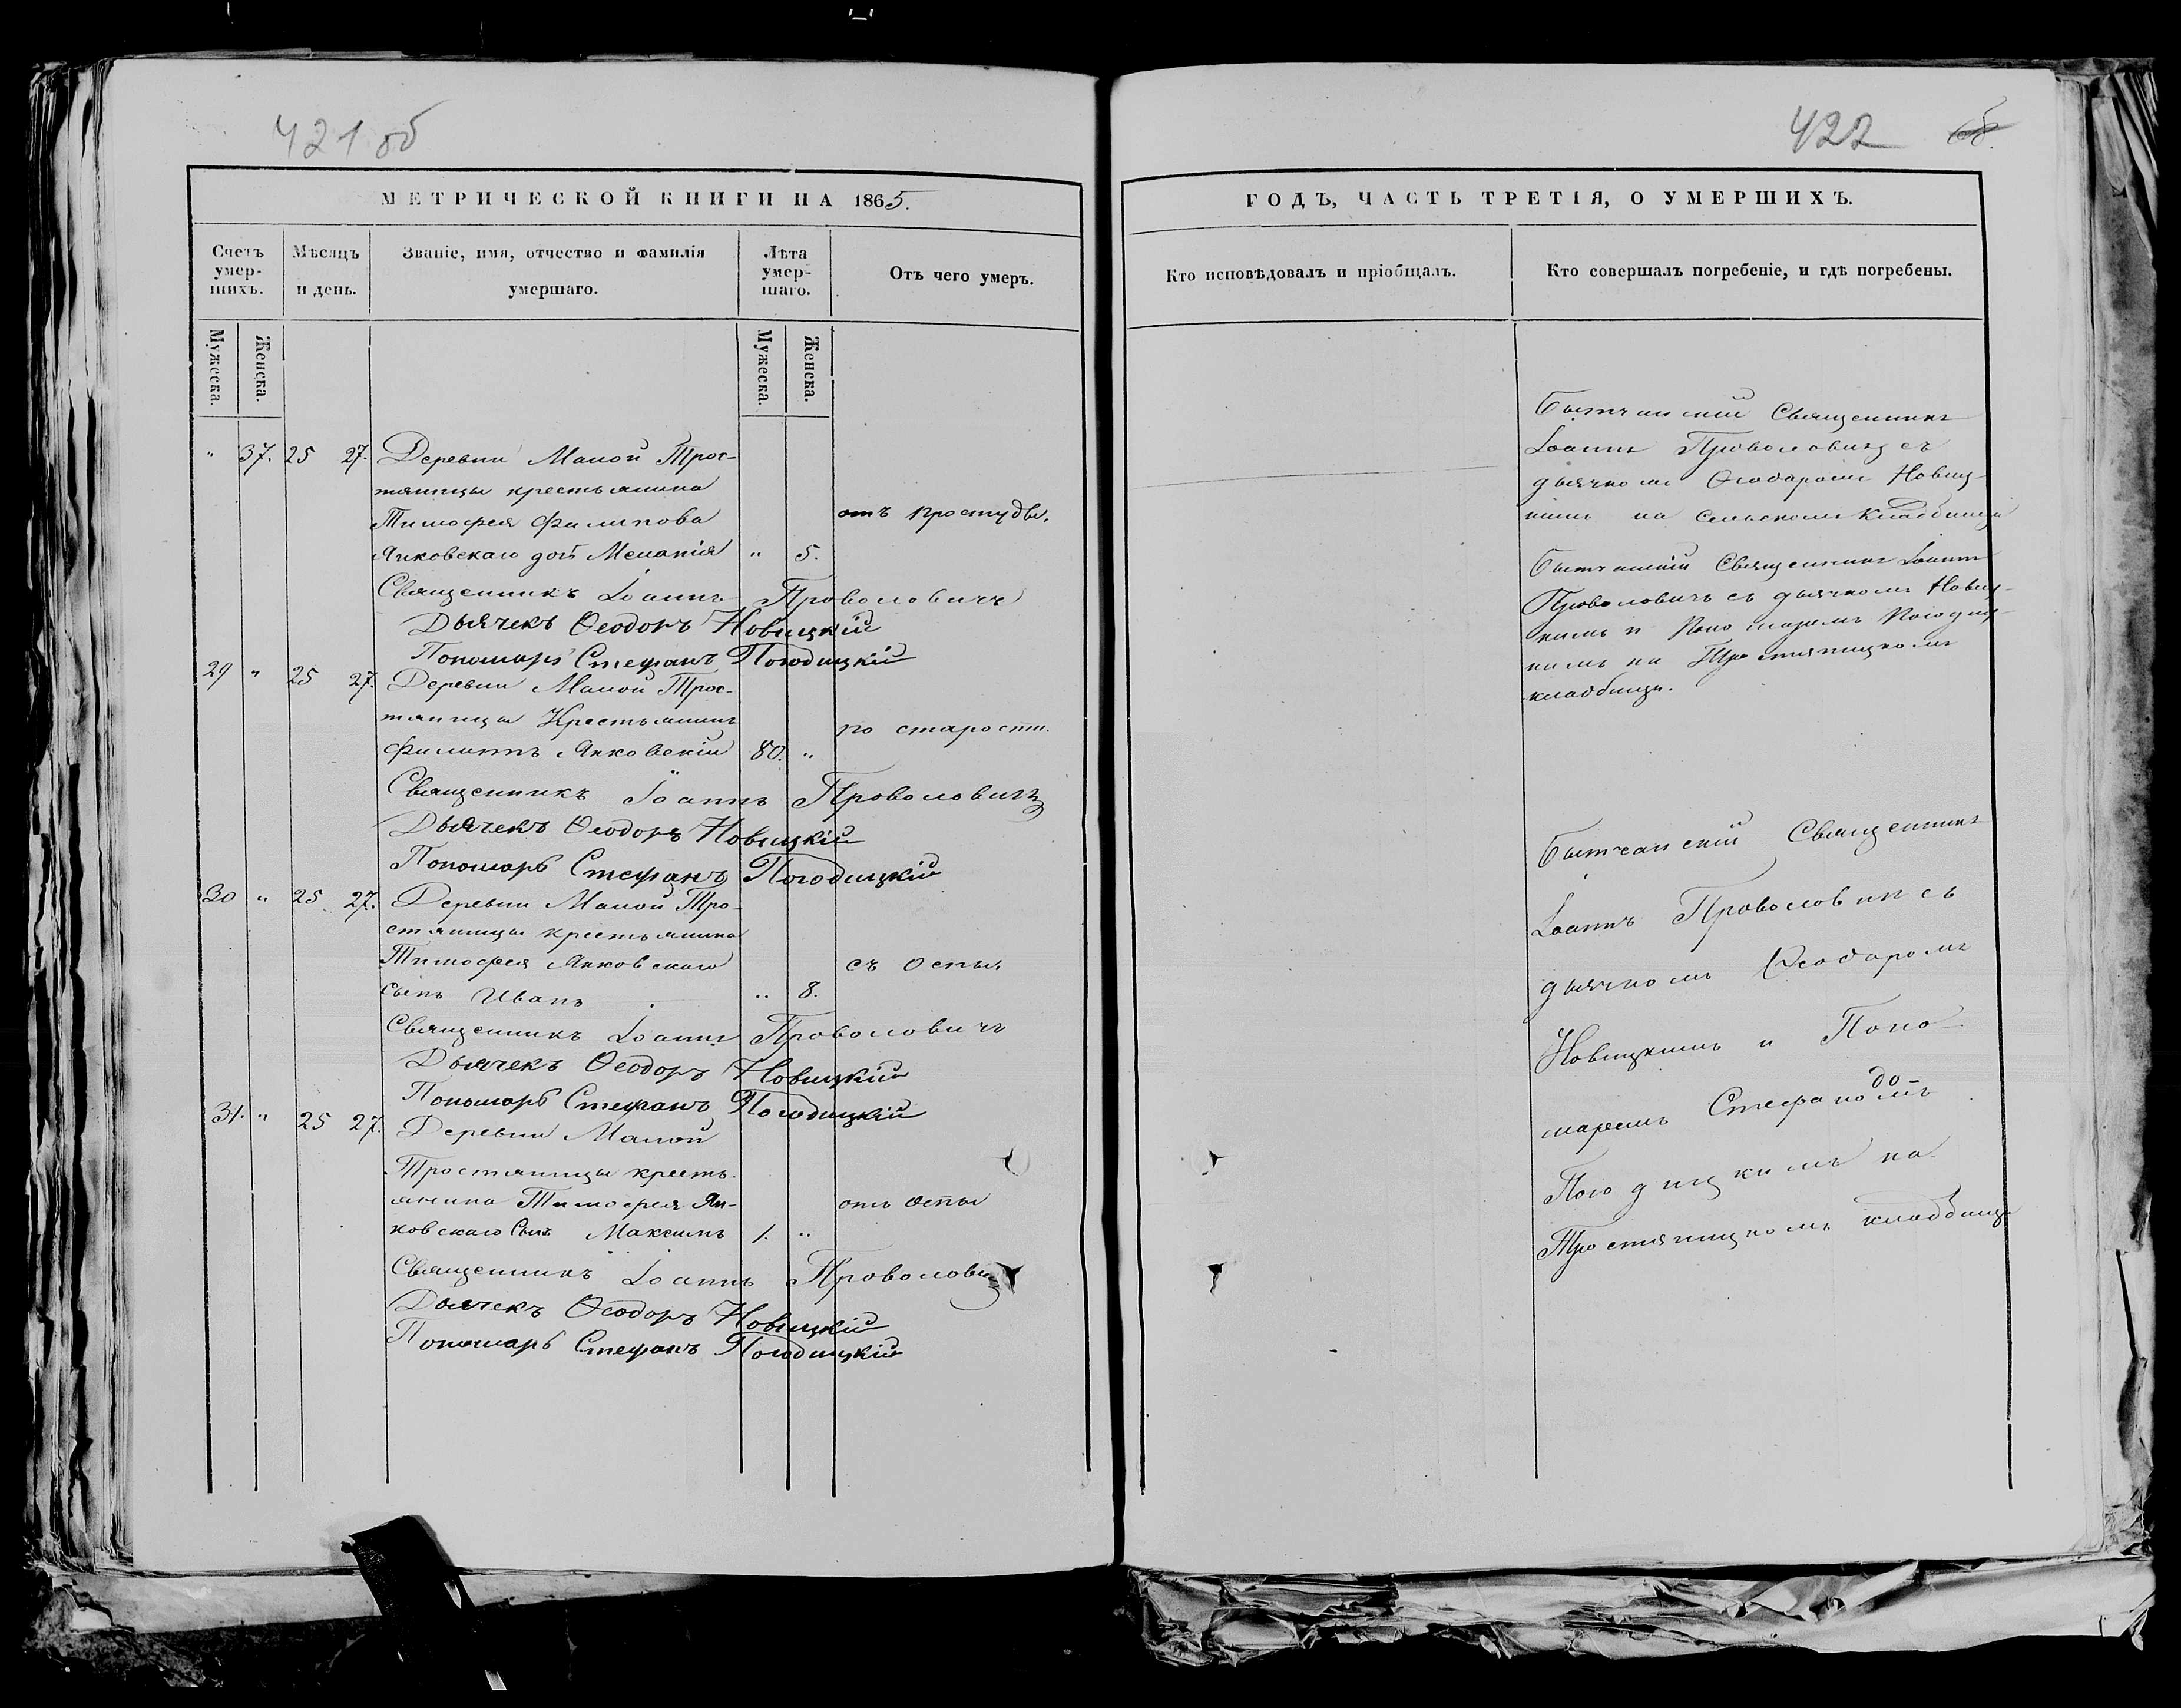 421 об
МЕТРИЧЕСКОЙ КНИГИ НА 1865.
Счетъ умер-шихъ.
Мѣсяцъ и день.
Званіе, имя, отчество и фамилія умершаго.
Лѣта умер-шаго.
Отъ чего умеръ.
Мужеска.
Женска.
Мужеска.
Женска.
" 37. 25 27. Деревни Малой Трос-
тяницы крестьянина
Тимофея Филипова
отъ простуды.
Янковскаго дочь Меланія " 5.
Священникъ Іоаннъ Проволовичъ
Дьячекъ Ѳеодоръ Новицкій
Пономарь Стефанъ Погодицкій
29 " 25 27. Деревни Малой Трос-
тяницы Крестьянинъ
по старости.
Филиппъ Янковскій 80. "
Священникъ Іоаннъ Проволовичъ
Дьячекъ Ѳеодоръ Новицкій
Пономарь Стефанъ Погодицкій
30 " 25 27. Деревни Малой Тро-
стяницы крестьянина
Тимофея Янковскаго съ Оспы.
сынъ Иванъ " 8.
Священникъ Іоаннъ Проволовичъ
Дьячекъ Ѳеодоръ Новицкій
Пономарь Стефанъ Погодицкій
31. " 25 27. Деревни Малой
Тростяницы кресть-
янина Тимофея Ян- отъ Оспы
ковскаго Сынъ Максимъ 1. "
Священникъ Іоаннъ Проволович
Дьячекъ Ѳеодоръ Новицкій
Пономарь Стефанъ Погодицкій
422
ГОДЪ, ЧАСТЬ ТРЕТІЯ, О УМЕРШИХЪ.
Кто исповѣдовалъ и пріобщалъ.
Кто совершалъ погребеніе, и гдѣ погребены.
Священникъ
Іоаннъ Проволовичъ съ
дьячкомъ Ѳеодоромъ Новиц-
кимъ на Сельскомъ Кладбищѣ
Священникъ Іоаннъ
Проволовичъ съ дьячкомъ Новиц-
кимъ и Пономаремъ Погодиц-
кимъ на Тростяницкомъ
кладбищѣ.
Священникъ
Іоаннъ Проволович съ
дьячкомъ Ѳеодоромъ
Новицкимъ и Поно-
маремъ Стефаномъ
Погодицкимъ на
Тростяницкомъ кладбищѣ